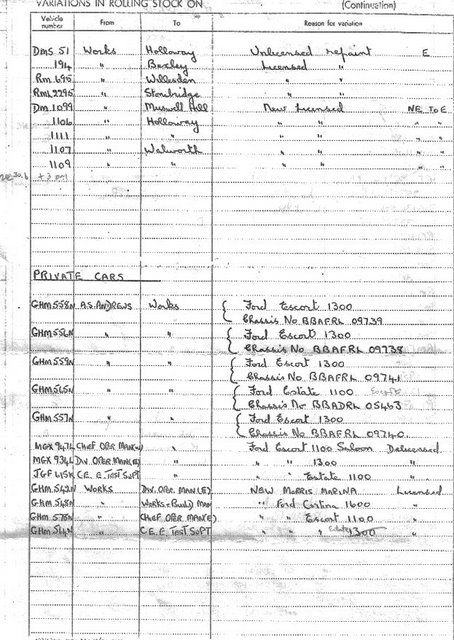 VARIATIONS IN ROLLING STOCK ON (Continuation)
Vehicle number From To Reason for variation
DMS 51 Works Holloway Unlicensed repaint E
194 " Bexley Licensed "
RM 695 " Willesden " "
RML 2295 " Stonbridge " "
DM 1099 " Muswell Hill New Licensed NE To E
1106 " Holloway " " " "
1111 " " " " " "
1107 " Walworth " " " "
1109 " " " " " "
PRIVATE CARS
GHM 558N A.S. ANDREWS Works { Ford Escort 1300
Chassis No BBAFRL 09739
GHM 556N " " { Ford Escort 1300
Chassis No BBAFRL 09738
GHM 559N " " { Ford Escort 1300
Chassis No BBAFRL 09741
GHM 565N " " { Ford Estate 1100
Chassis No BBADRL 05463
GHM 557N " " { Ford Escort 1300
Chassis No BBAFRL 09740
MGX 947L CHIEF OPER MAN(E) " Ford Escort 1100 Saloon Delicensed
MGX 934L DIV. OPER MAN(E) " " " 1300 "
JGF 415K C.E. E. TEST SUPT " " Estate 1100 "
GHM 542N WORKS DIV. OPER MAN (E) NEW MORRIS MARINA Licensed
GHM 548N " WORKS MAN " Ford Cortina 1600 "
GHM 578N " CHIEF OPER MAN(E) " " Escort 1100 "
GHM 564N " C.E. E. TEST SUPT " " " Estate 1300 "